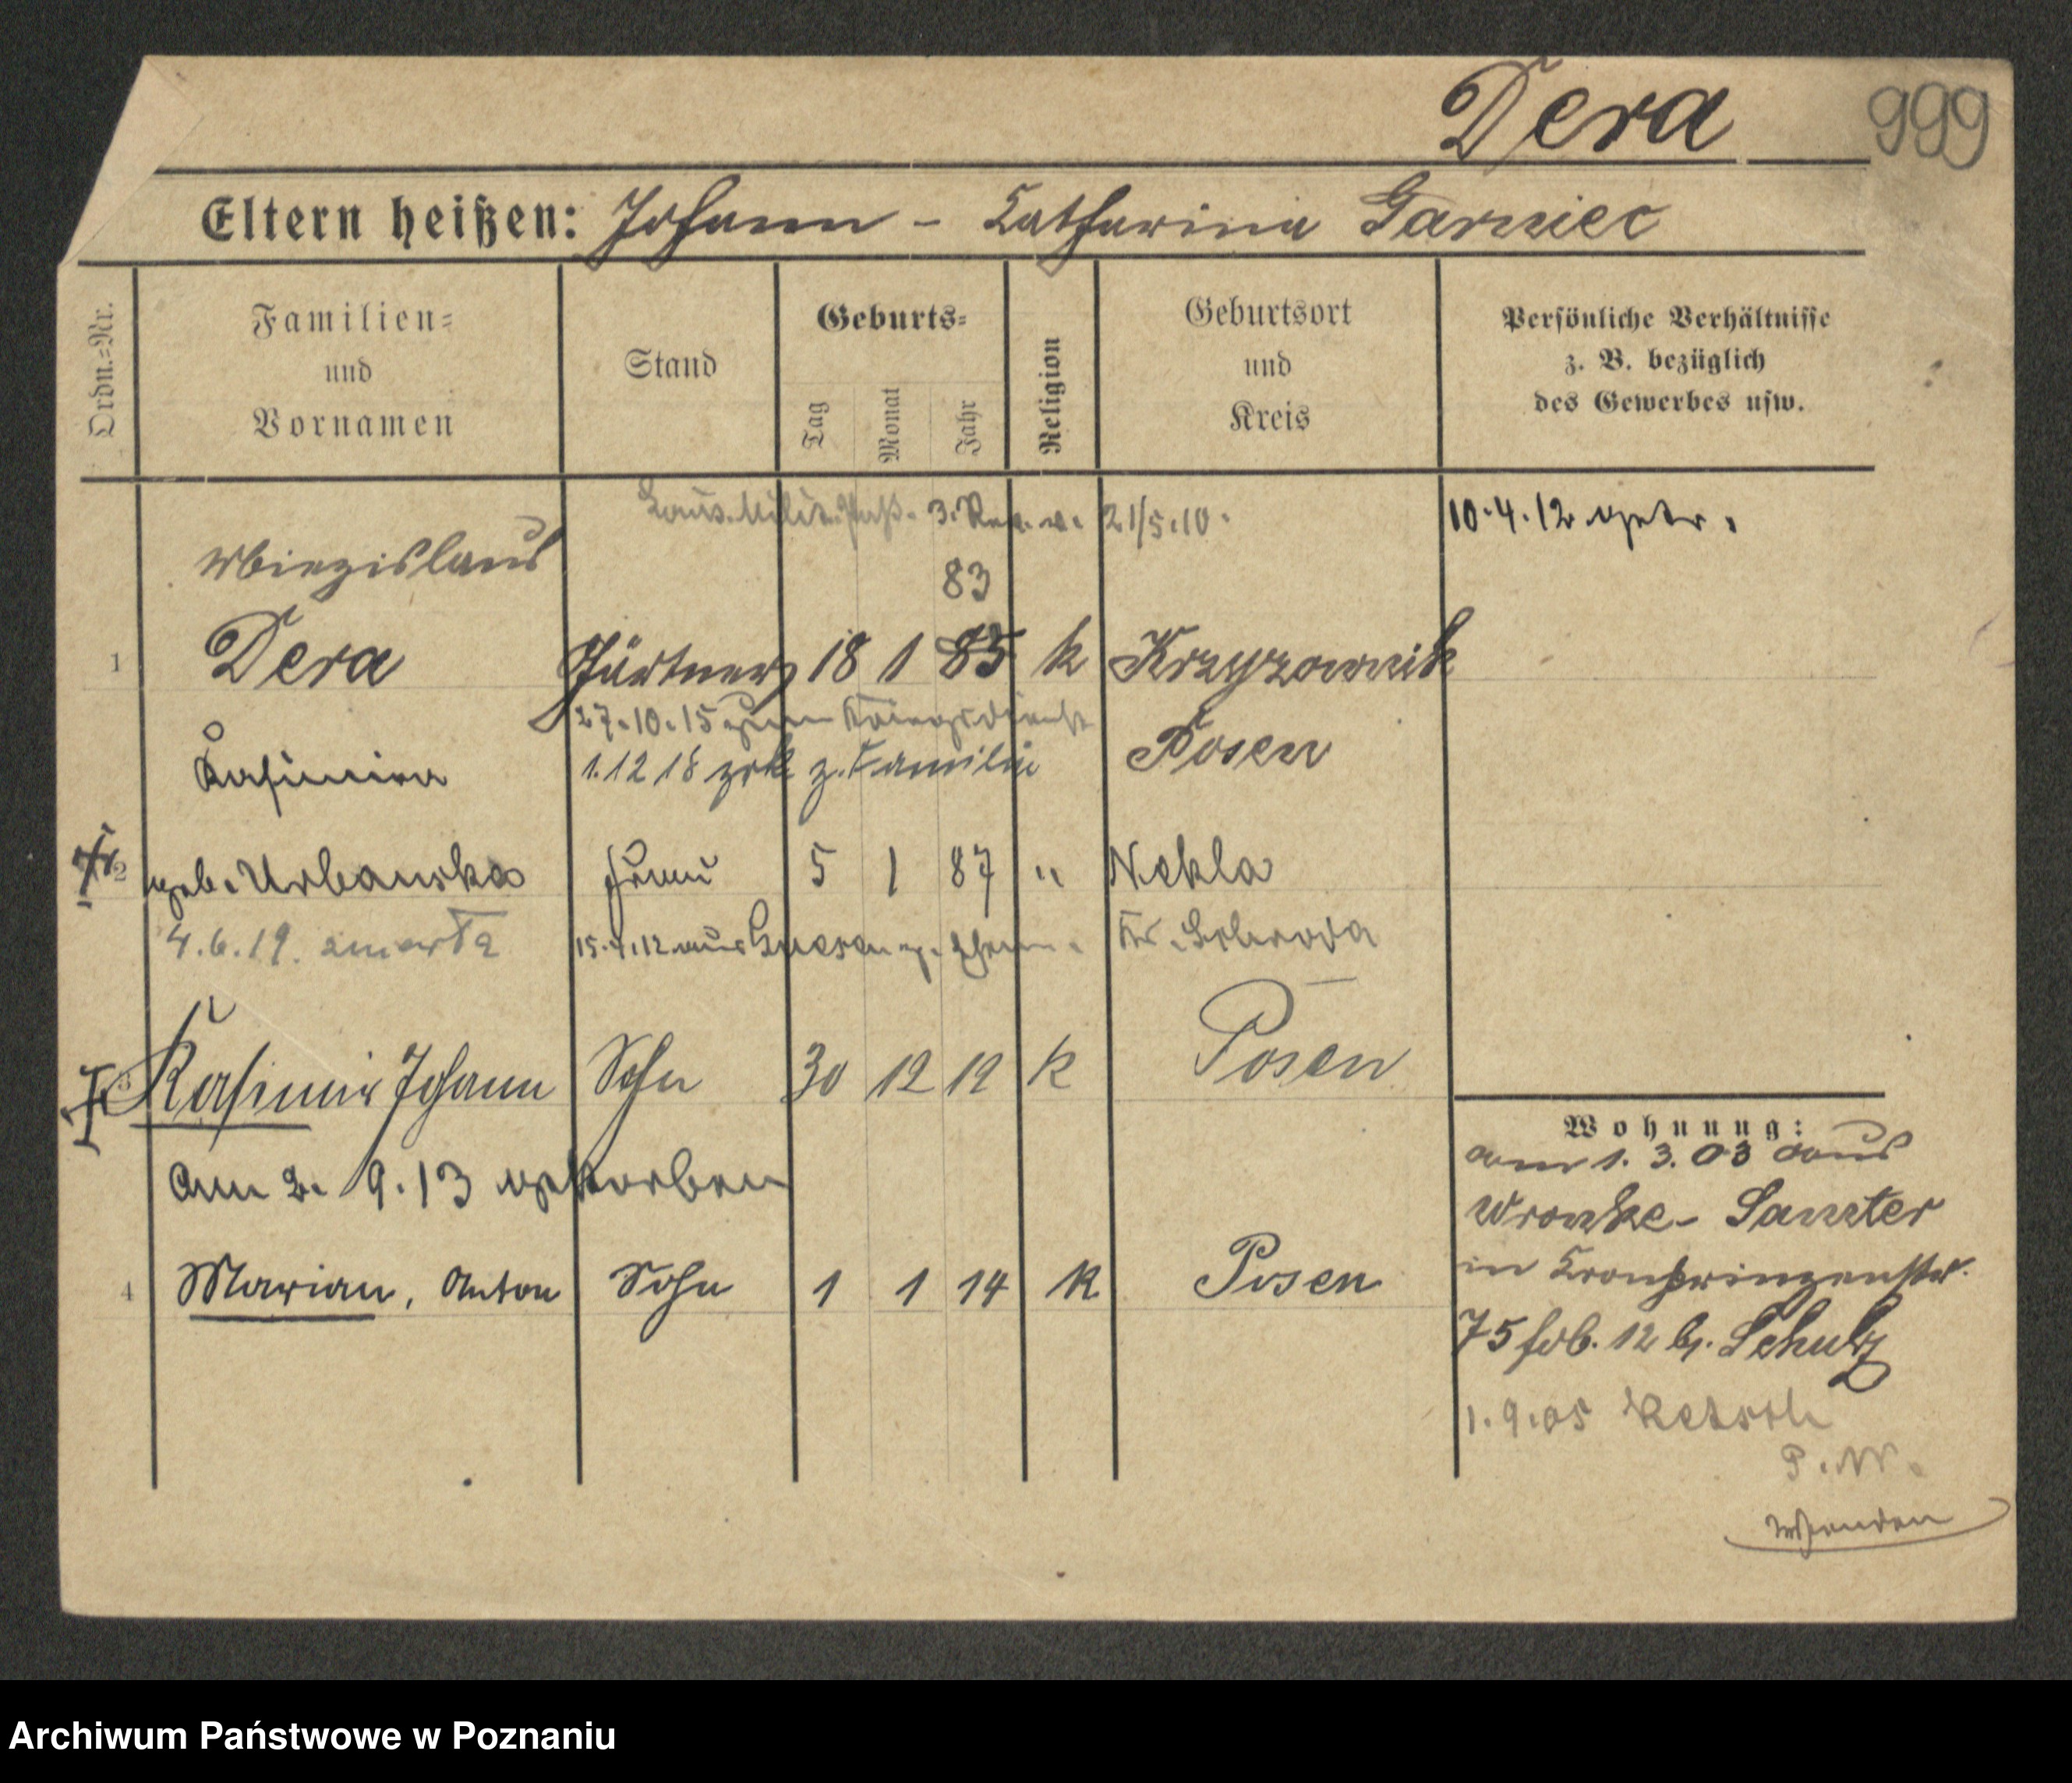 Dera 999
Eltern heißen: Johann - Katharina Garniec
Ordn.=Nr.
Familien=
und
Vornamen
Stand
Geburts=
Tag
Monat
Jahr
Religion
Geburtsort
und
Kreis
Persönliche Verhältnisse
z. B. bezüglich
des Gewerbes usw.
Milit. Paß. 21/5.10.
10.4.12 getr.
Miezislaus
83
1 Dera Gärtner 18 1 85 k Krzyzownik
27.10.15 zum Kriegsdienst
Posen
Kasimira
1.12 18 zrk z. Familie
2 geb. Urbanska Frau 5 1 87 " Nekla
4.6.19. zmarła
15.4.12 aus Gnesen z. Ehem.
Kr. Schroda
3 Kasimir Johann Sohn 30 12 12 k Posen
am 2. 9.13 gestorben
4 Marian, Anton Sohn 1 1 14 k Posen
Wohnung:
am 1. 3. 03 aus
Wronke - Samter
in Kronprinzenstr.
75 fdb. 12 b. Schulz
1.9.05
P.W.
Wenden
Archiwum Państwowe w Poznaniu